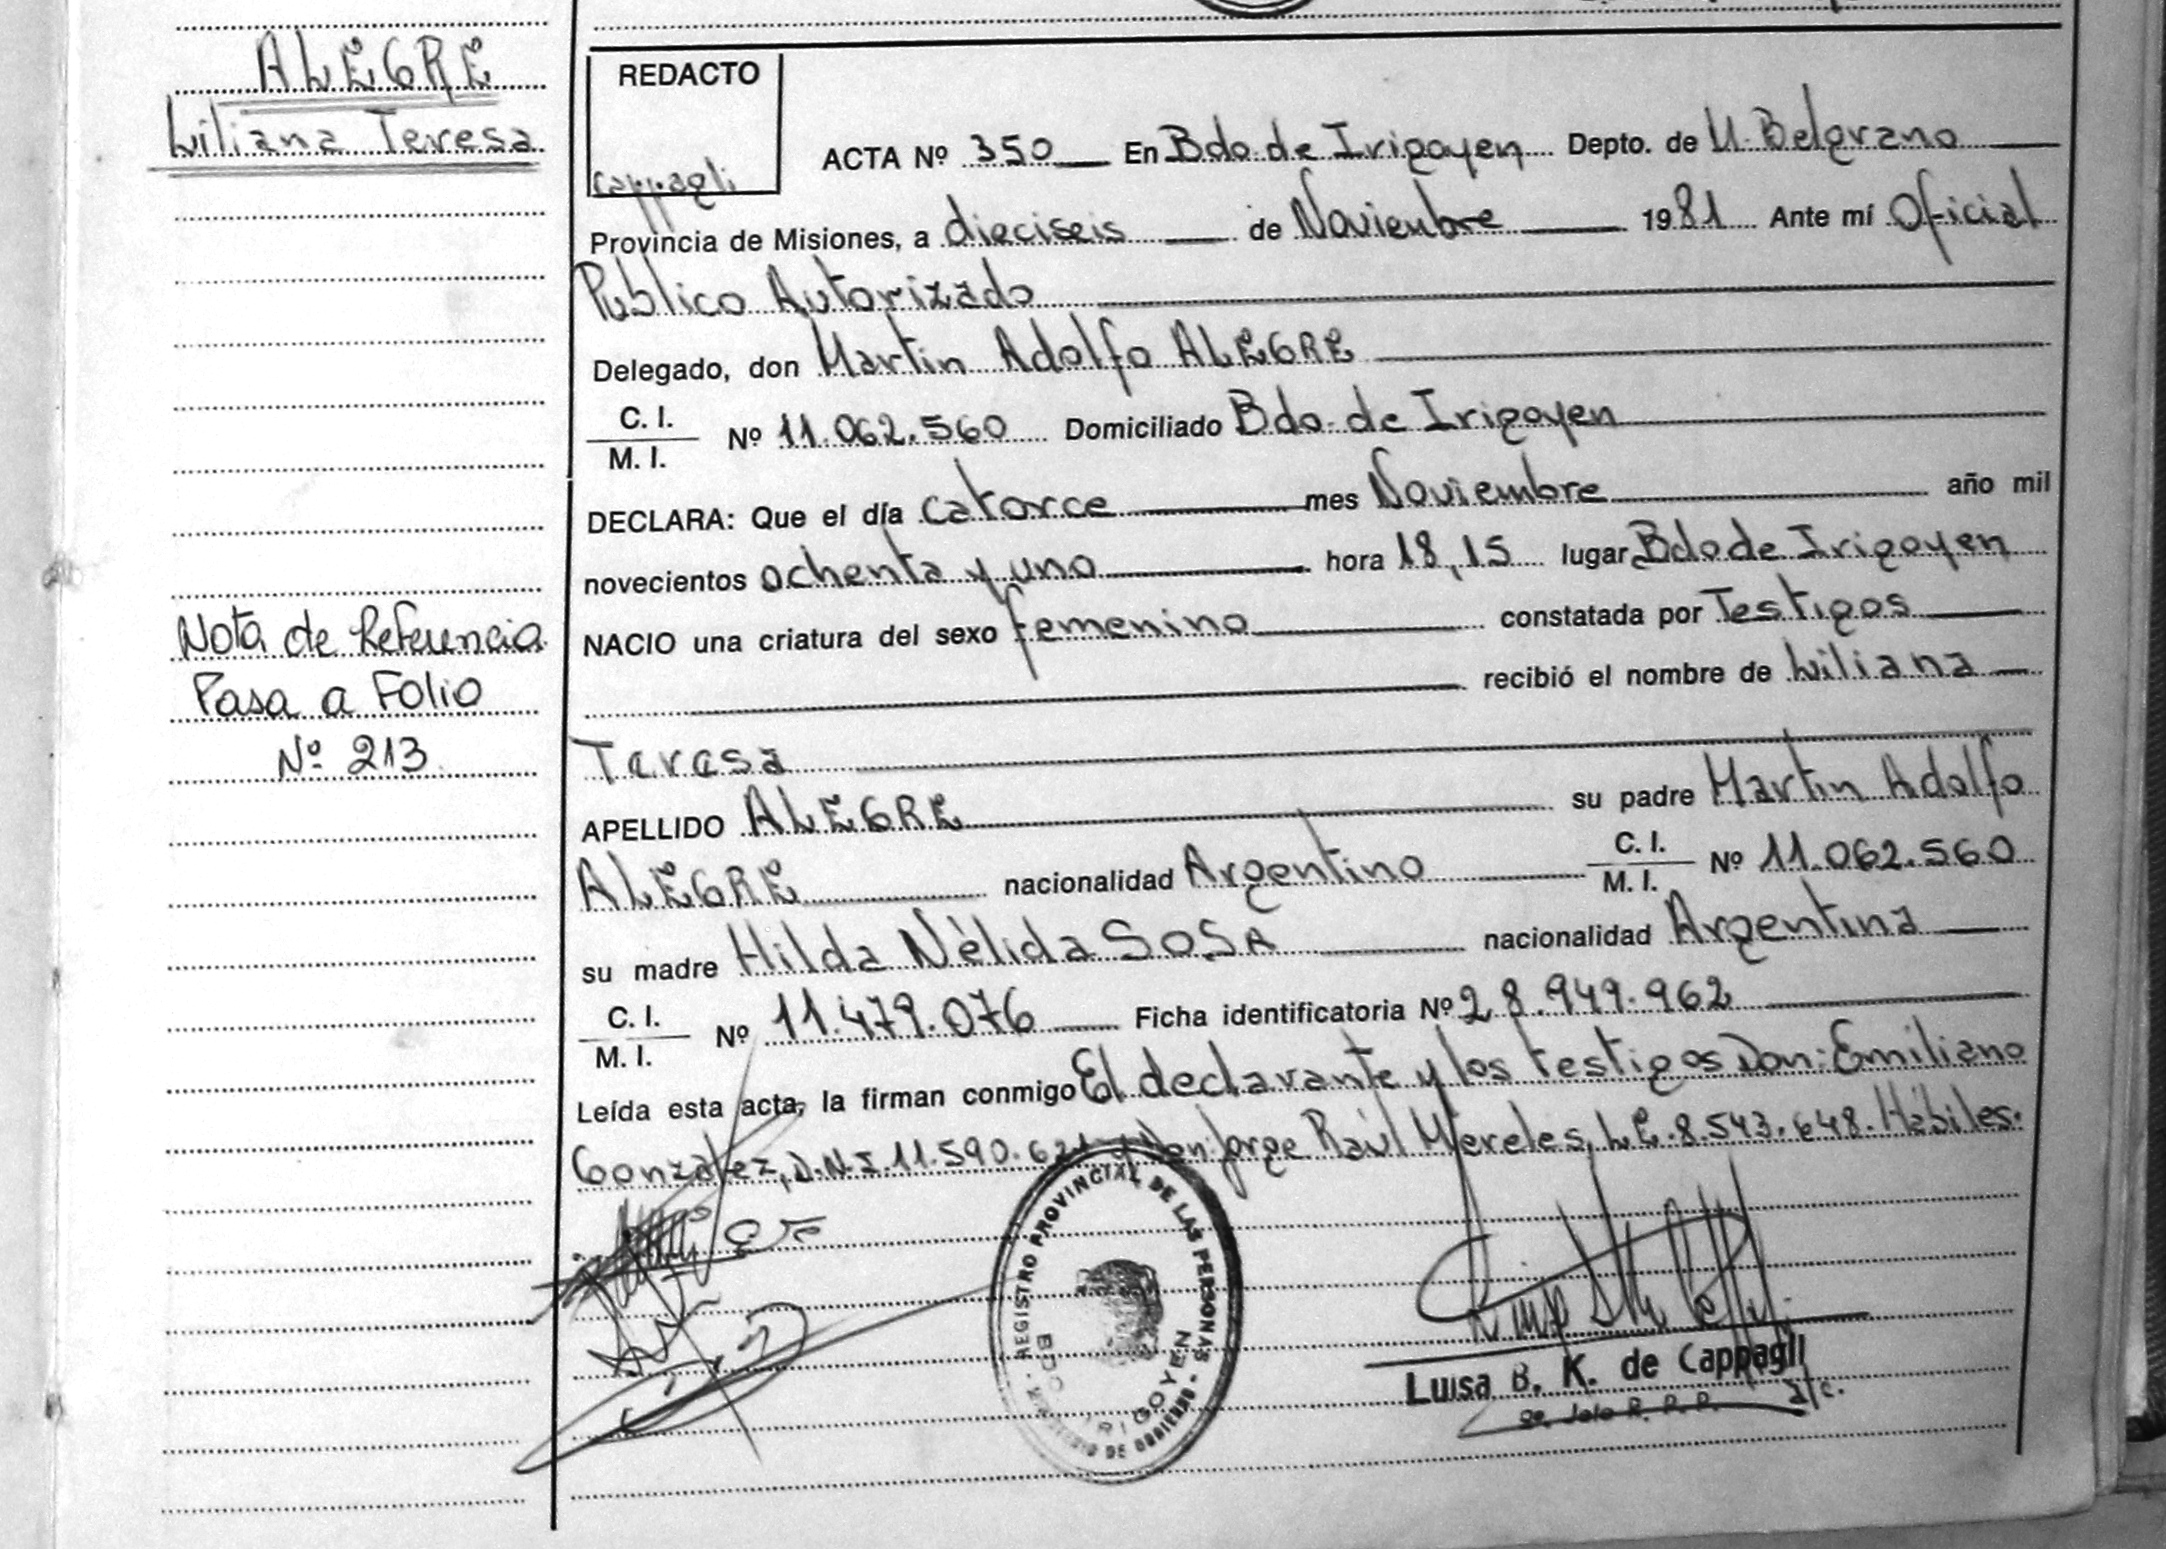 ALEGRE
Liliana Teresa
Nota de Referencia
Pasa a Folio
Nº 213
REDACTO
Cappagli
ACTA Nº 350 En Bdo. de Irigoyen Depto. de M. Belgrano
Provincia de Misiones, a dieciseis de Noviembre 1981 Ante mí Oficial
Publico Autorizado
Delegado, don Martin Adolfo ALEGRE
C. I.
M. I. Nº 11.062.560 Domiciliado Bdo. de Irigoyen
DECLARA: Que el día catorce mes Noviembre año mil
novecientos ochenta y uno hora 18,15 lugar Bdo de Irigoyen
NACIO una criatura del sexo femenino constatada por Testigos
recibió el nombre de Liliana
Teresa
APELLIDO ALEGRE su padre Martin Adolfo
ALEGRE nacionalidad Argentino C. I. M. I. Nº 11.062.560
su madre Hilda Nèlida SOSA nacionalidad Argentina
C. I.
M. I. Nº 11.479.076 Ficha identificatoria Nº 28.949.962
Leída esta acta, la firman conmigo El declarante y los testigos Don: Emiliano
Gonzalez, D.N.I. 11.590.621 y Don: Jorge Raúl Mereles, L.E. 8.543.648. Hábiles.
REGISTRO PROVINCIAL DE LAS PERSONAS
BDO IRIGOYEN
MINISTERIO DE GOBIERNO
Luisa B. K. de Cappagli
a/c.